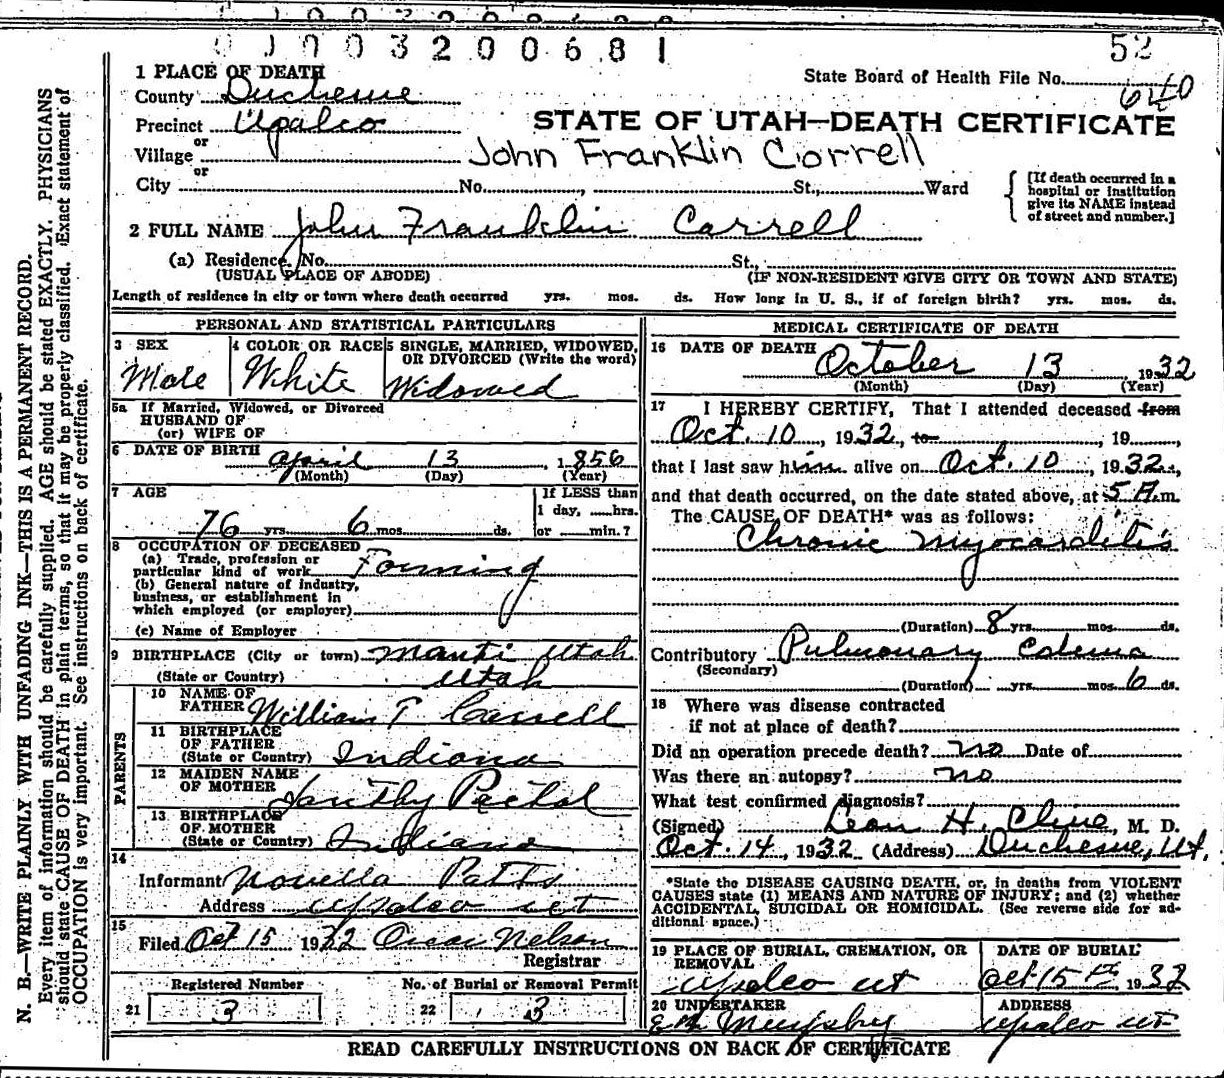 0 1 0 0 3 2 0 0 6 8 1
52
1 PLACE OF DEATH
State Board of Health File No. 640
County Duchesne
Precinct Upalco
STATE OF UTAH—DEATH CERTIFICATE
or
Village
John Franklin Correll
or
City No. , St., Ward
[If death occurred in a hospital or institution give its NAME instead of street and number.]
2 FULL NAME John Franklin Carrell
(a) Residence, No. St.,
(USUAL PLACE OF ABODE) (IF NON-RESIDENT GIVE CITY OR TOWN AND STATE)
Length of residence in city or town where death occurred yrs. mos. ds. How long in U. S., if of foreign birth? yrs. mos. ds.
PERSONAL AND STATISTICAL PARTICULARS
3 SEX 4 COLOR OR RACE 5 SINGLE, MARRIED, WIDOWED,
OR DIVORCED (Write the word)
Male White Widowed
5a If Married, Widowed, or Divorced
HUSBAND OF
(or) WIFE OF
6 DATE OF BIRTH April 13, 1856
(Month) (Day) (Year)
7 AGE
If LESS than
1 day, hrs.
76 yrs 6 mos. ds. or min.?
8 OCCUPATION OF DECEASED
(a) Trade, profession or
particular kind of work Farming
(b) General nature of industry,
business, or establishment in
which employed (or employer)
(c) Name of Employer
9 BIRTHPLACE (City or town) Manti Utah
(State or Country) Utah
PARENTS
10 NAME OF
FATHER William T Carrell
11 BIRTHPLACE
OF FATHER
(State or Country) Indiana
12 MAIDEN NAME
OF MOTHER
13 BIRTHPLACE
OF MOTHER
(State or Country) Indiana
14
Informant Potts
Address Upalco Ut
15
Filed Oct 15 1932 Oscar Nelson
Registrar
Registered Number No. of Burial or Removal Permit
21 3 22 3
MEDICAL CERTIFICATE OF DEATH
16 DATE OF DEATH October 13, 1932
(Month) (Day) (Year)
17 I HEREBY CERTIFY, That I attended deceased from
Oct. 10, 1932, to , 19 ,
that I last saw him alive on Oct. 10, 1932,
and that death occurred, on the date stated above, at 5 A.m.
The CAUSE OF DEATH* was as follows:
Chronic Myocarditis
(Duration) 8 yrs. mos. ds.
Contributory Pulmonary Edema
(Secondary)
(Duration) yrs. mos 6 ds.
18 Where was disease contracted
if not at place of death?
Did an operation precede death? no Date of
Was there an autopsy? no
What test confirmed diagnosis?
(Signed) Leon H. Cline, M. D.
Oct. 14, 1932 (Address) Duchesne, Ut.
*State the DISEASE CAUSING DEATH, or, in deaths from VIOLENT
CAUSES state (1) MEANS AND NATURE OF INJURY; and (2) whether
ACCIDENTAL, SUICIDAL OR HOMICIDAL. (See reverse side for additional space.)
19 PLACE OF BURIAL, CREMATION, OR
REMOVAL
DATE OF BURIAL
Upalco Ut Oct 15th 1932
20 UNDERTAKER ADDRESS
Upalco Ut
READ CAREFULLY INSTRUCTIONS ON BACK OF CERTIFICATE
N. B.—WRITE PLAINLY WITH UNFADING INK—THIS IS A PERMANENT RECORD.
Every item of information should be carefully supplied. AGE should be stated EXACTLY. PHYSICIANS
should state CAUSE OF DEATH in plain terms, so that it may be properly classified. Exact statement of
OCCUPATION is very important. See instructions on back of certificate.